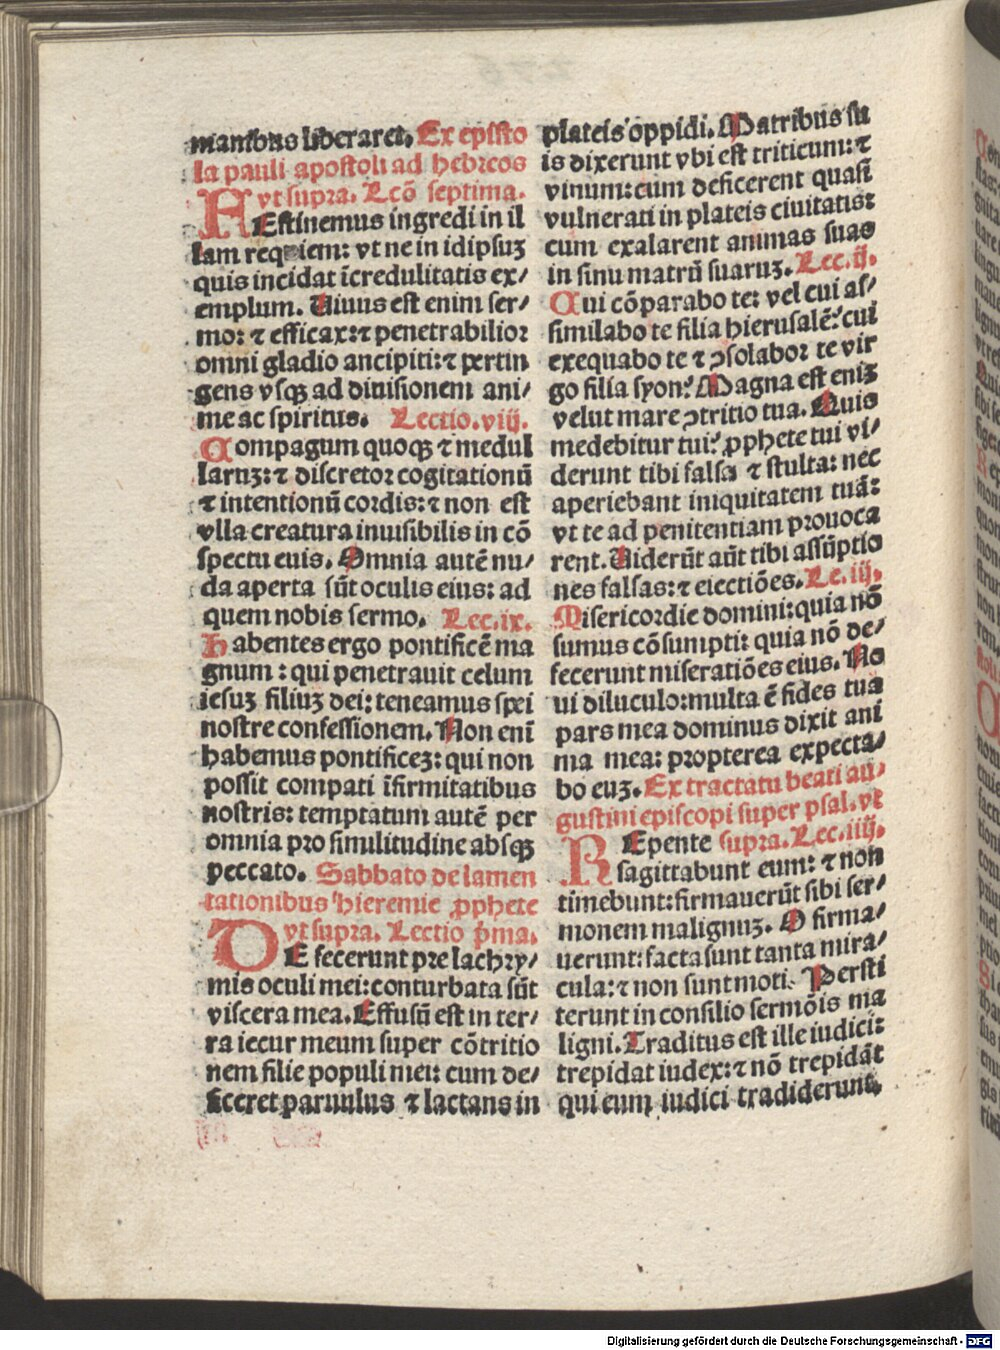 manibus liberaret. Ex episto
la pauli apostoli ad hebreos
vt supra. Lcō septima.
FEstinemus ingredi in il
lam requiem: vt ne in idipsuꝫ
quis incidat īcredulitatis ex⸗
emplum. Uiuus est enim ser⸗
mo: ⁊ efficax: ⁊ penetrabilior
omni gladio ancipiti: ⁊ pertin
gens vsqꝫ ad diuisionem ani⸗
me ac spiritus. Lectio.viij.
Compagum quoqꝫ ⁊ medul
laruꝫ: ⁊ discretor cogitationū
⁊ intentionū cordis: ⁊ non est
vlla creatura inuisibilis in cō
spectu euis. Omnia autē nu⸗
da aperta sūt oculis eius: ad
quem nobis sermo. Lec.ix.
Habentes ergo pontificē ma
gnum: qui penetrauit celum
iesuꝫ filiuꝫ dei: teneamus spei
nostre confessionem. Non enī
habemus pontificeꝫ: qui non
possit compati īfirmitatibus
nostris: temptatum autē per
omnia pro similitudine absqꝫ
peccato. Sabbato de lamen
tationibus hieremie ꝓphete
vt supra. Lectio p̄ma.
DEfecerunt pre lachry⸗
mis oculi mei: conturbata sūt
viscera mea. Effusū est in ter⸗
ra iecur meum super cōtritio
nem filie populi mei: cum de⸗
ficeret paruulus ⁊ lactans in
plateis oppidi. Matribus su
is dixerunt vbi est triticum: ⁊
vinum: cum deficerent quasi
vulnerati in plateis ciuitatis:
cum exalarent animas suas
in sinu matrū suaruꝫ. Lec.ij.
Cui cōparabo te: vel cui as⸗
similabo te filia hierusalē: cui
exequabo te ⁊ ꝯsolabor te vir
go filia syon? Magna est eniꝫ
velut mare ꝯtritio tua. Quis
medebitur tui? ꝓphete tui vi⸗
derunt tibi falsa ⁊ stulta: nec
aperiebant iniquitatem tuā:
vt te ad penitentiam prouoca
rent. Uiderūt aūt tibi assūptio
nes falsas: ⁊ eiectiōes. Le.iij.
Misericordie domini: quia nō
sumus cōsumpti: quia nō de⸗
fecerunt miseratiōes eius. No
ui diluculo: multa ē fides tua
pars mea dominus dixit ani
ma mea: propterea expecta⸗
bo euꝫ. Ex tractatu beati au⸗
gustini episcopi super psal. vt
REpente supra. Lec.iiij.
sagittabunt eum: ⁊ non
timebunt: firmauerūt sibi ser⸗
monem malignuꝫ. O firma⸗
uerunt: facta sunt tanta mira⸗
cula: ⁊ non sunt moti. Persti
terunt in consilio sermōis ma
ligni. Traditus est ille iudici:
trepidat iudex: ⁊ nō trepidāt
qui eum iudici tradiderunt.
Digitalisierung gefördert durch die Deutsche Forschungsgemeinschaft - DFG